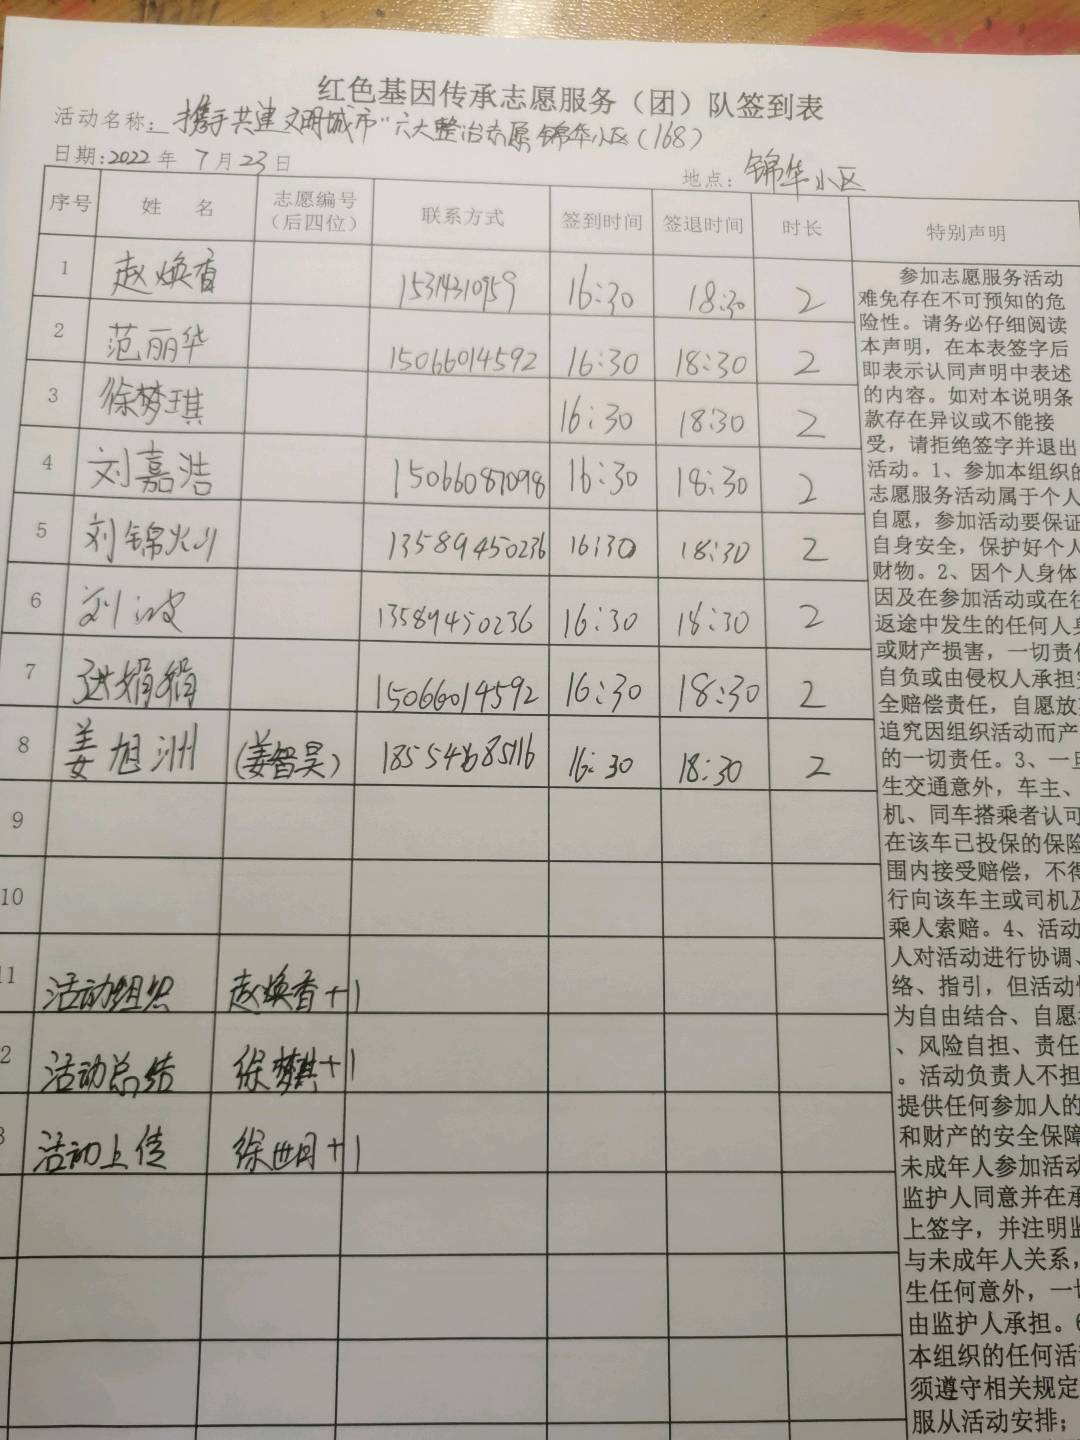 红色基因传承志愿服务（团）队签到表
活动名称：携手共建文明城市"六大整治志愿 锦华小区（168）
日期：2022 年 7 月 23 日 地点：锦华小区
序号 姓 名 志愿编号（后四位） 联系方式 签到时间 签退时间 时长 特别声明
1 赵焕香 15314310959 16:30 18:30 2
2 范丽华 15066014592 16:30 18:30 2
3 徐梦琪 16:30 18:30 2
4 刘嘉浩 15066087098 16:30 18:30 2
5 刘锦 13589450236 16:30 18:30 2
6 刘波 13589450236 16:30 18:30 2
7 娟娟 15066014592 16:30 18:30 2
8 姜旭洲 (姜智昊) 16:30 18:30 2
9
10
11 活动组织 赵焕香+1
2 活动总结 徐梦琪+1
3 活动上传 徐世同+1
参加志愿服务活动
难免存在不可预知的危
险性。请务必仔细阅读
本声明，在本表签字后
即表示认同声明中表述
的内容。如对本说明条
款存在异议或不能接
受，请拒绝签字并退出
活动。1、参加本组织的
志愿服务活动属于个人
自愿，参加活动要保证
自身安全，保护好个人
财物。2、因个人身体
因及在参加活动或在往
返途中发生的任何人身
或财产损害，一切责任
自负或由侵权人承担完
全赔偿责任，自愿放
追究因组织活动而产
的一切责任。3、一旦
生交通意外，车主、
机、同车搭乘者认可
在该车已投保的保险
围内接受赔偿，不得
行向该车主或司机及
乘人索赔。4、活动
人对活动进行协调、
络、指引，但活动
为自由结合、自愿
、风险自担、责任
。活动负责人不担
提供任何参加人的
和财产的安全保障
未成年人参加活动
监护人同意并在承
上签字，并注明监
与未成年人关系，
生任何意外，一切
由监护人承担。6
本组织的任何活
须遵守相关规定
服从活动安排；